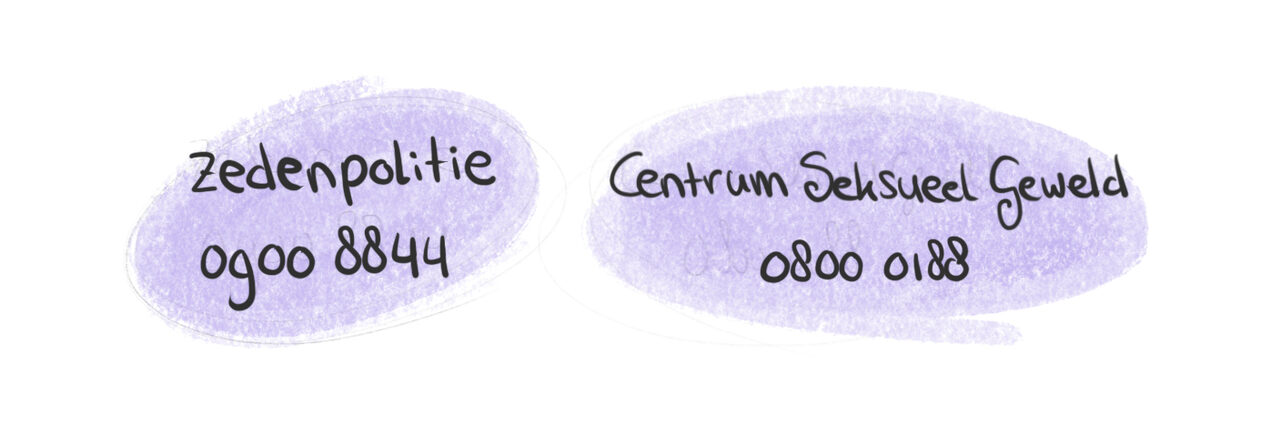 Zedenpolitie
0900 8844
Centrum Seksueel Geweld
0800 0188